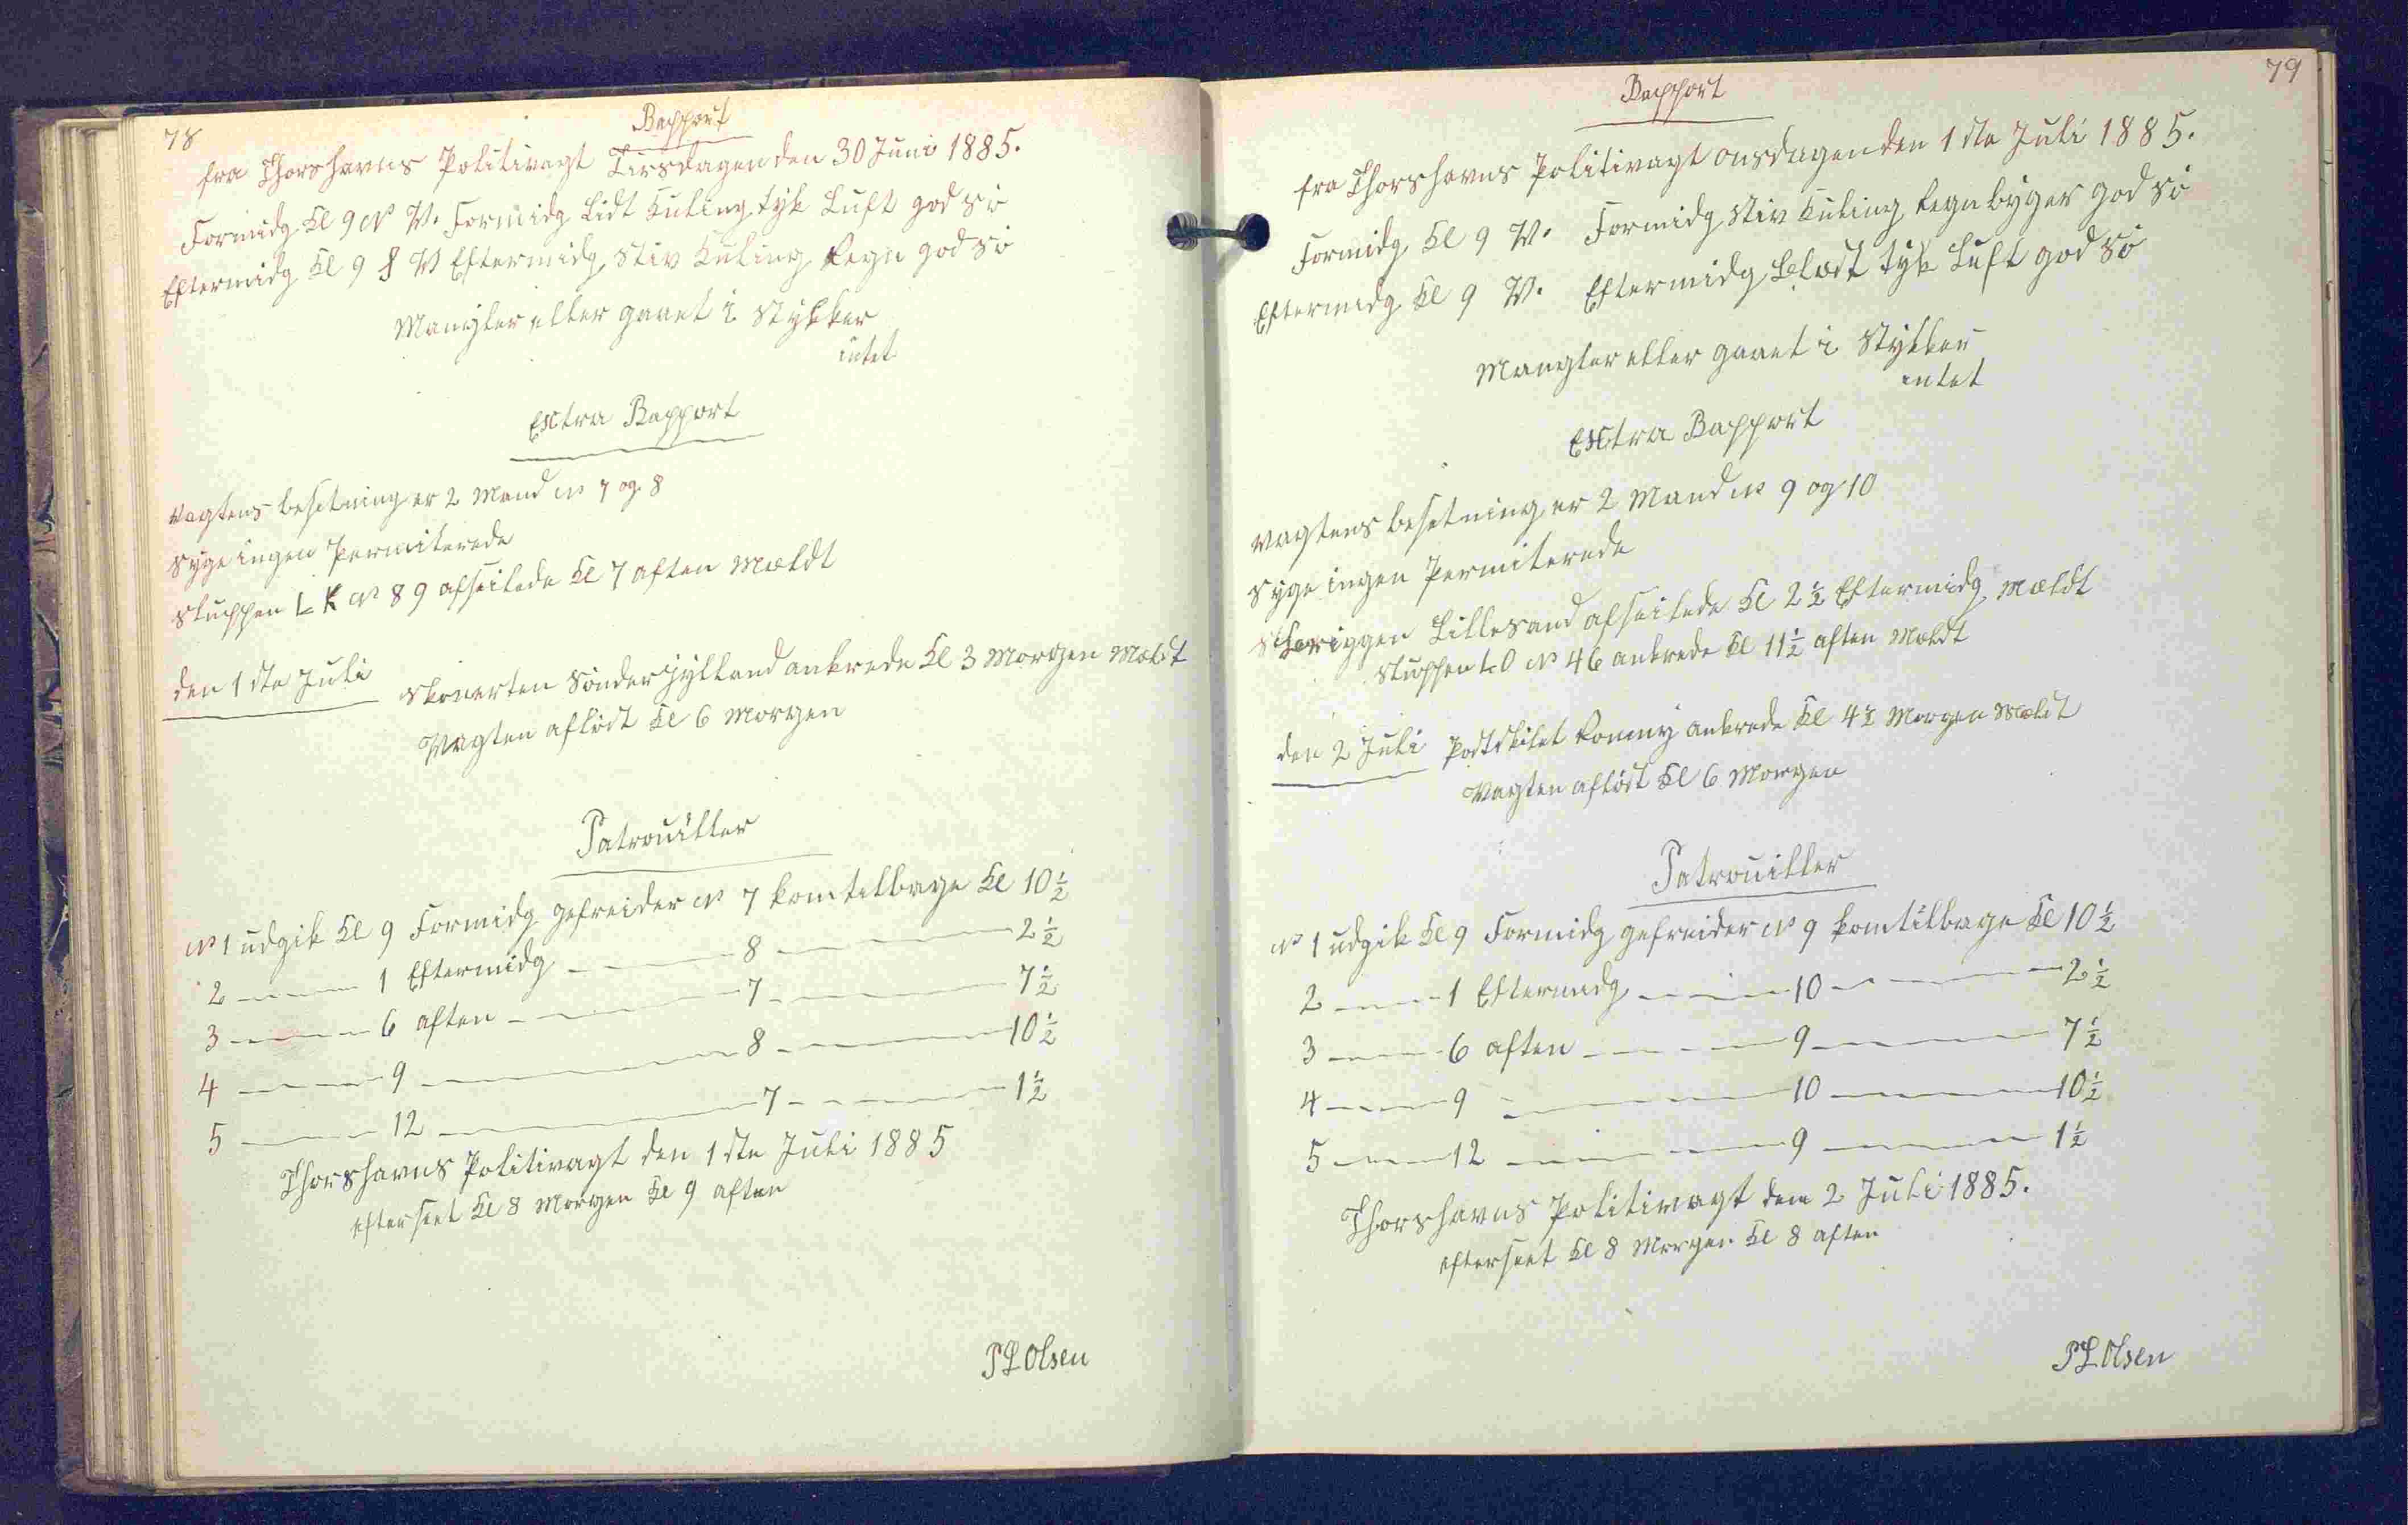 78
Rapport
fra Thorshavns Politivagt Tirsdagen den 30 Juni 1885.
Formidg Kl 9 N V. Formidg Lidt Kuling tyk Luft god Sö
Eftermidg Kl 9 S V Eftermidg Stiv Kuling Regn god Sö
Mangler eller gaaet i Stykker
intet
Extra Rapport
Vagtens besetning er 2 Mand No 7 og 8
Syge ingen Permiterede
Sluppen L K No 89 afseilede Kl 7 aften Mældt
den 1ste Juli Skonerten Sönderjylland ankrede Kl 3 Morgen Mældt
Vagten aflöst Kl 6 Morgen
Patrouiller
No 1 udgik Kl 9 Formidg gefreider No 7 kom tilbage Kl 10½
2 — 1 Eftermidg — 8 — 2½
3 — 6 aften — 7 — 7½
4 — 9 — 8 — 10½
5 — 12 — 7 — 1½
Thorshavns Politivagt den 1ste Juli 1885
efterseet Kl 8 Morgen Kl 9 aften
P L Olsen
79
Rapport
fra Thorshavns Politivagt onsdagen den 1ste Juli 1885.
Formidg Kl 9 V. Formidg Stiv Kuling Regnbyger god Sö
Eftermidg Kl 9 V. Eftermidg tyk Luft god Sö
Mangler eller gaaet i Stykker
intet
Extra Rapport
Vagtens besetning er 2 Mand No 9 og 10
Syge ingen Permiterede
Lillesand afseilede Kl 2½ Eftermidg Mældt
Sluppen L O No 46 ankrede Kl 11½ aften Mældt
den 2 Juli Postskibet Romny ankrede Kl 4½ Morgen Mældt
Vagten aflöst Kl 6 Morgen
Patrouiller
No 1 udgik Kl 9 Formidg gefreider No 9 kom tilbage Kl 10½
2 — 1 Eftermidg — 10 — 2½
3 — 6 aften — 9 — 7½
4 — 9 — 10 — 10½
5 — 12 — 9 — 1½
Thorshavns Politivagt den 2 Juli 1885.
efterseet Kl 8 Morgen Kl 8 aften
P L Olsen